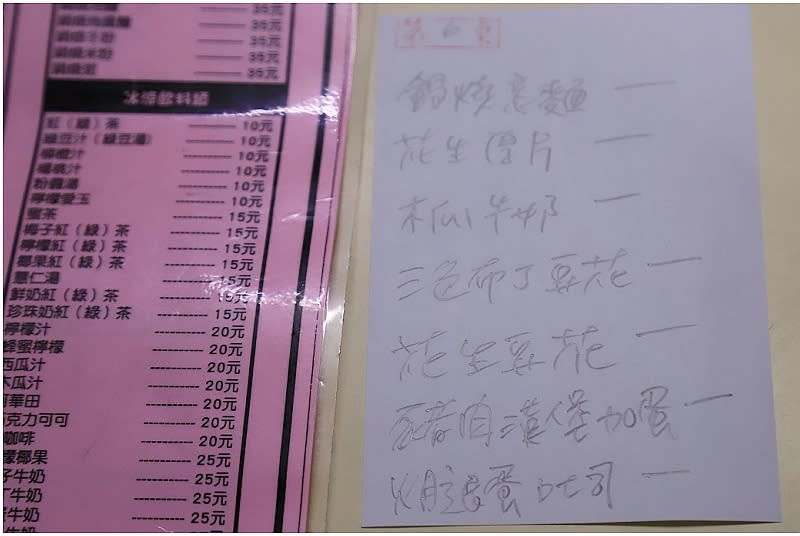 鍋燒冬粉 35元
鍋燒米粉 35元
35元
冰涼飲料類
紅（綠）茶 10元
綠豆汁（綠豆湯） 10元
柳橙汁 10元
楊桃汁 10元
粉圓湯 10元
檸檬愛玉 10元
蜜茶 15元
梅子紅（綠）茶 15元
檸檬紅（綠）茶 15元
椰果紅（綠）茶 15元
薏仁湯 15元
鮮奶紅（綠）茶 15元
珍珠奶紅（綠）茶 15元
檸檬汁 20元
蜂蜜檸檬 20元
西瓜汁 20元
木瓜汁 20元
阿華田 20元
巧克力可可 20元
咖啡 20元
檸檬椰果 25元
子牛奶 25元
丁牛奶 25元
牛奶 25元
第 頁
鍋燒意麵 一
花生厚片 一
木瓜牛奶 一
三色布丁豆花 一
花生豆花 一
豬肉漢堡加蛋 一
火腿蛋吐司 一